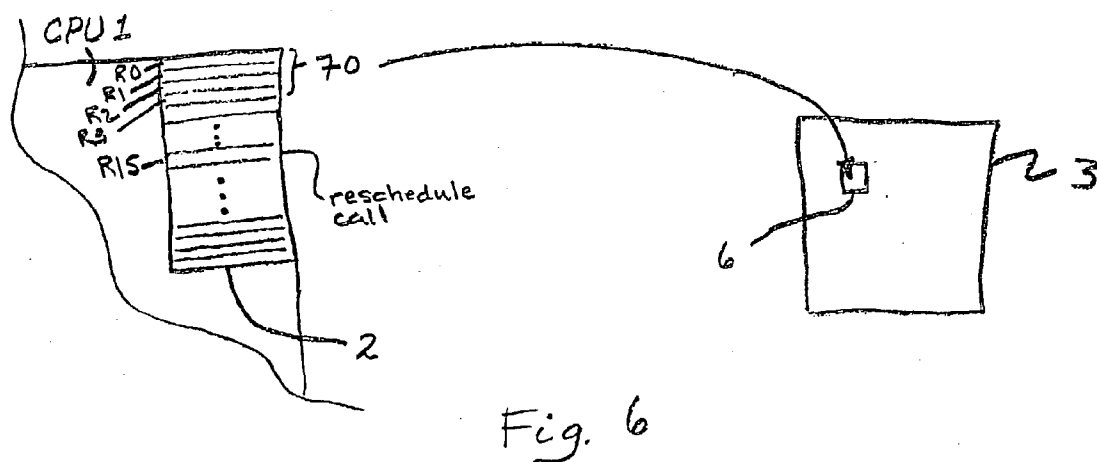 CPU 1
R0
R1
R2
R3
R15
70
reschedule
call
2
3
6
Fig. 6